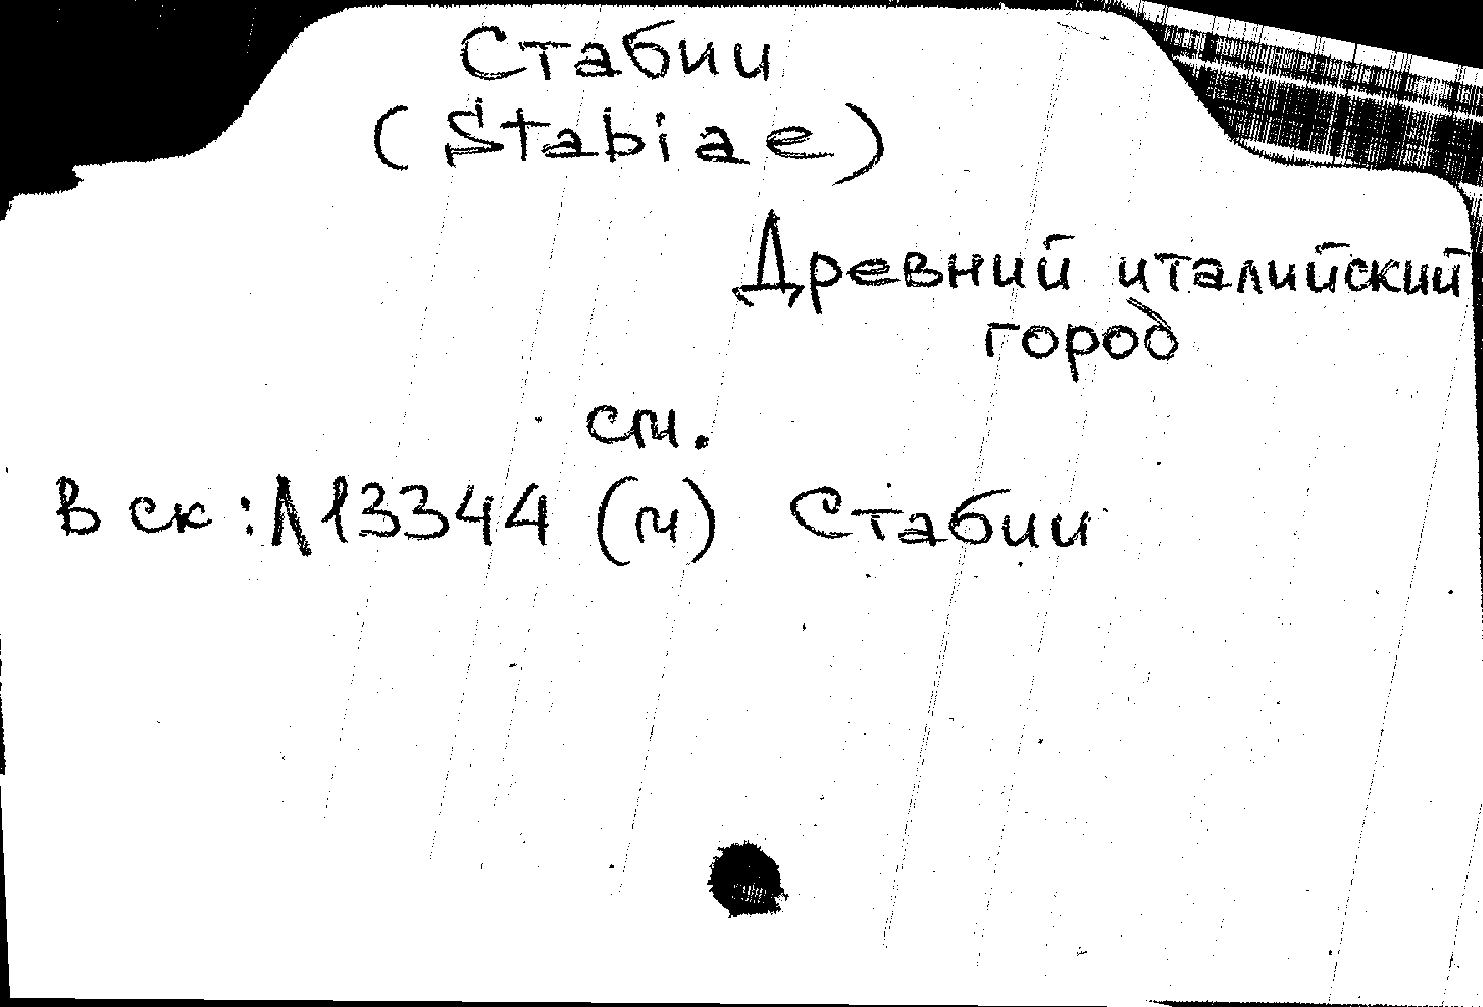 Стабии
(Stabiae)
Древний италийский
город
см.
В ск: Л13344 (м) Стабии